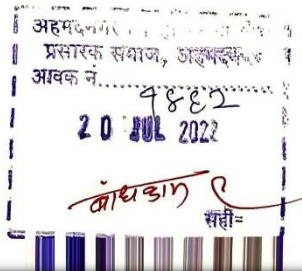 अहमदनगर
प्रसारक समाज, अहमदनगर
आवक नं.
१४६२
20 JUL 2022
बांधकाम
सही=